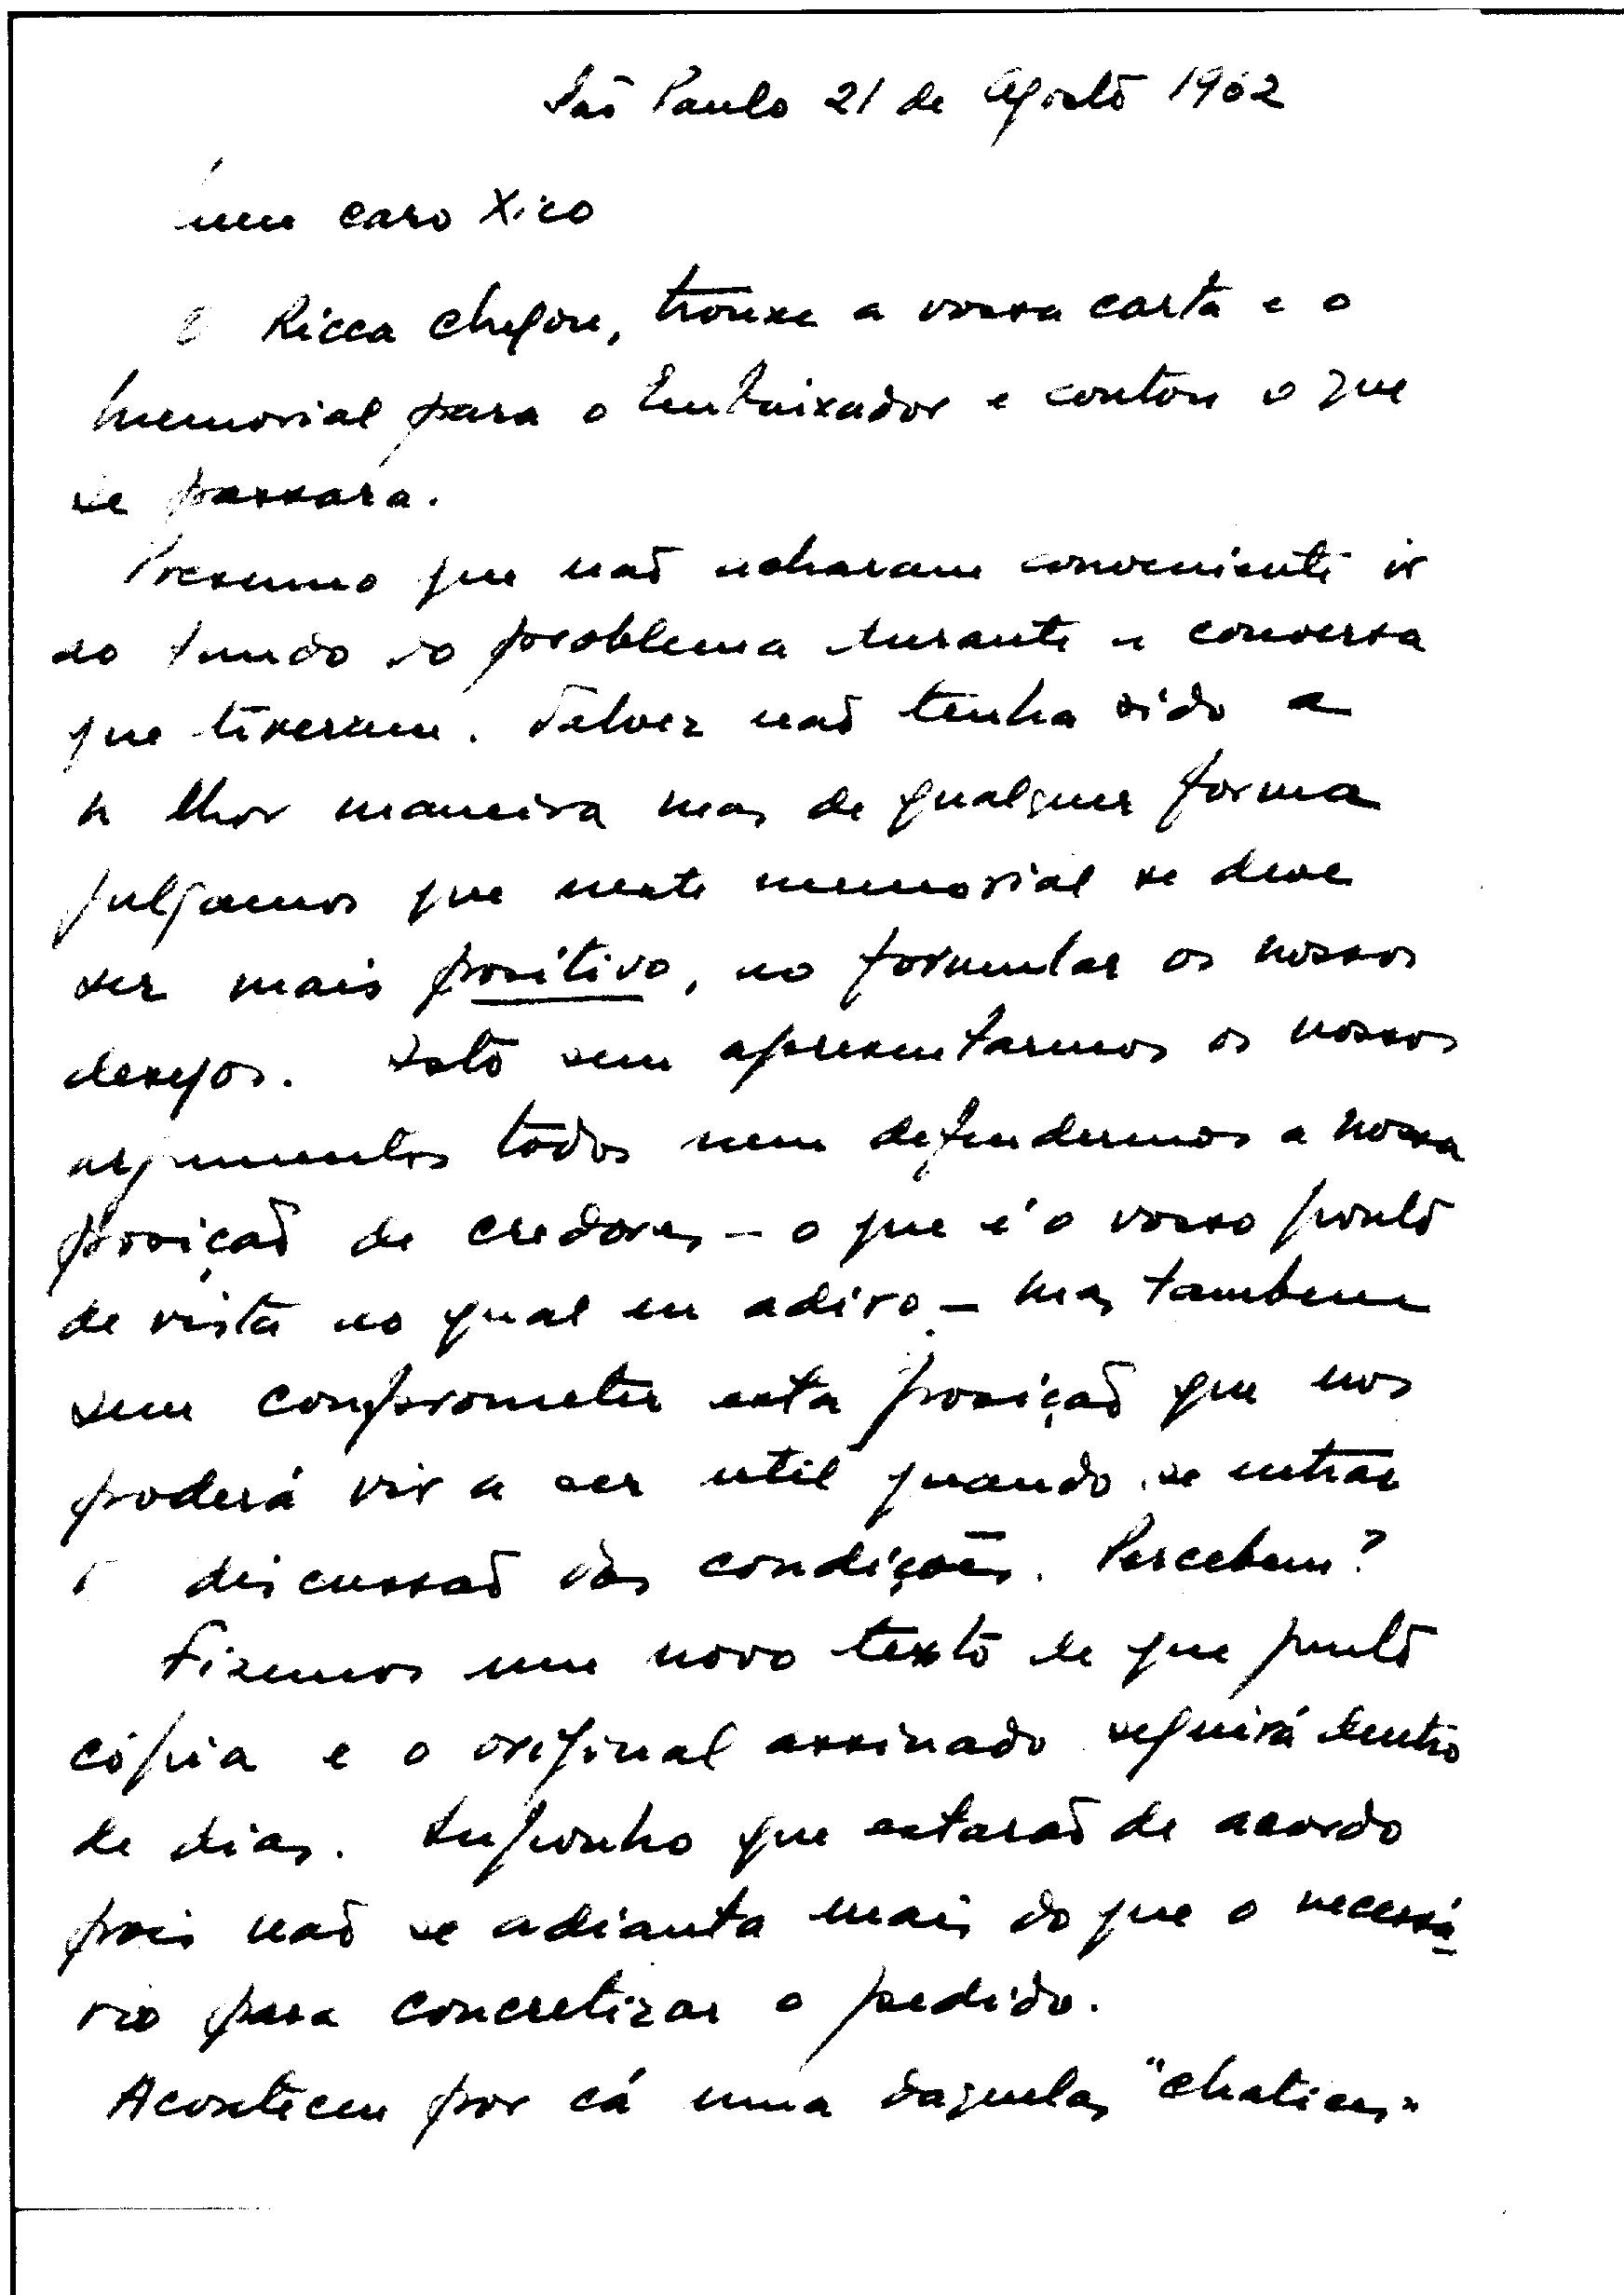 São Paulo 21 de Agosto 1962
meu caro Xico
O Ricca chegou, trouxe a vossa carta e o
memorial para o Embaixador e contou o que
se passara.
Presumo que não acharam conveniente ir
ao fundo do problema durante a conversa
que tiveram. Talvez não tenha sido a
m lhor maneira mas de qualquer forma
julgamos que neste memorial se deve
ser mais positivo, ao formular os nossos
desejos. Isto sem apresentarmos os nossos
argumentos todos nem defendermos a nossa
posição de credores - o que é o vosso ponto
de vista ao qual eu adiro - mas tambem
sem comprometer esta posição que nos
poderá vir a ser util quando se entrar
discussão das condições. Percebem?
Fizemos um novo texto de que junto
cópia e o original assinado seguirá dentro
de dias. Suponho que estarão de acordo
pois não se adianta mais do que o necessá
rio para concretizar o pedido.
Aconteceu por cá uma daquelas "chatices"